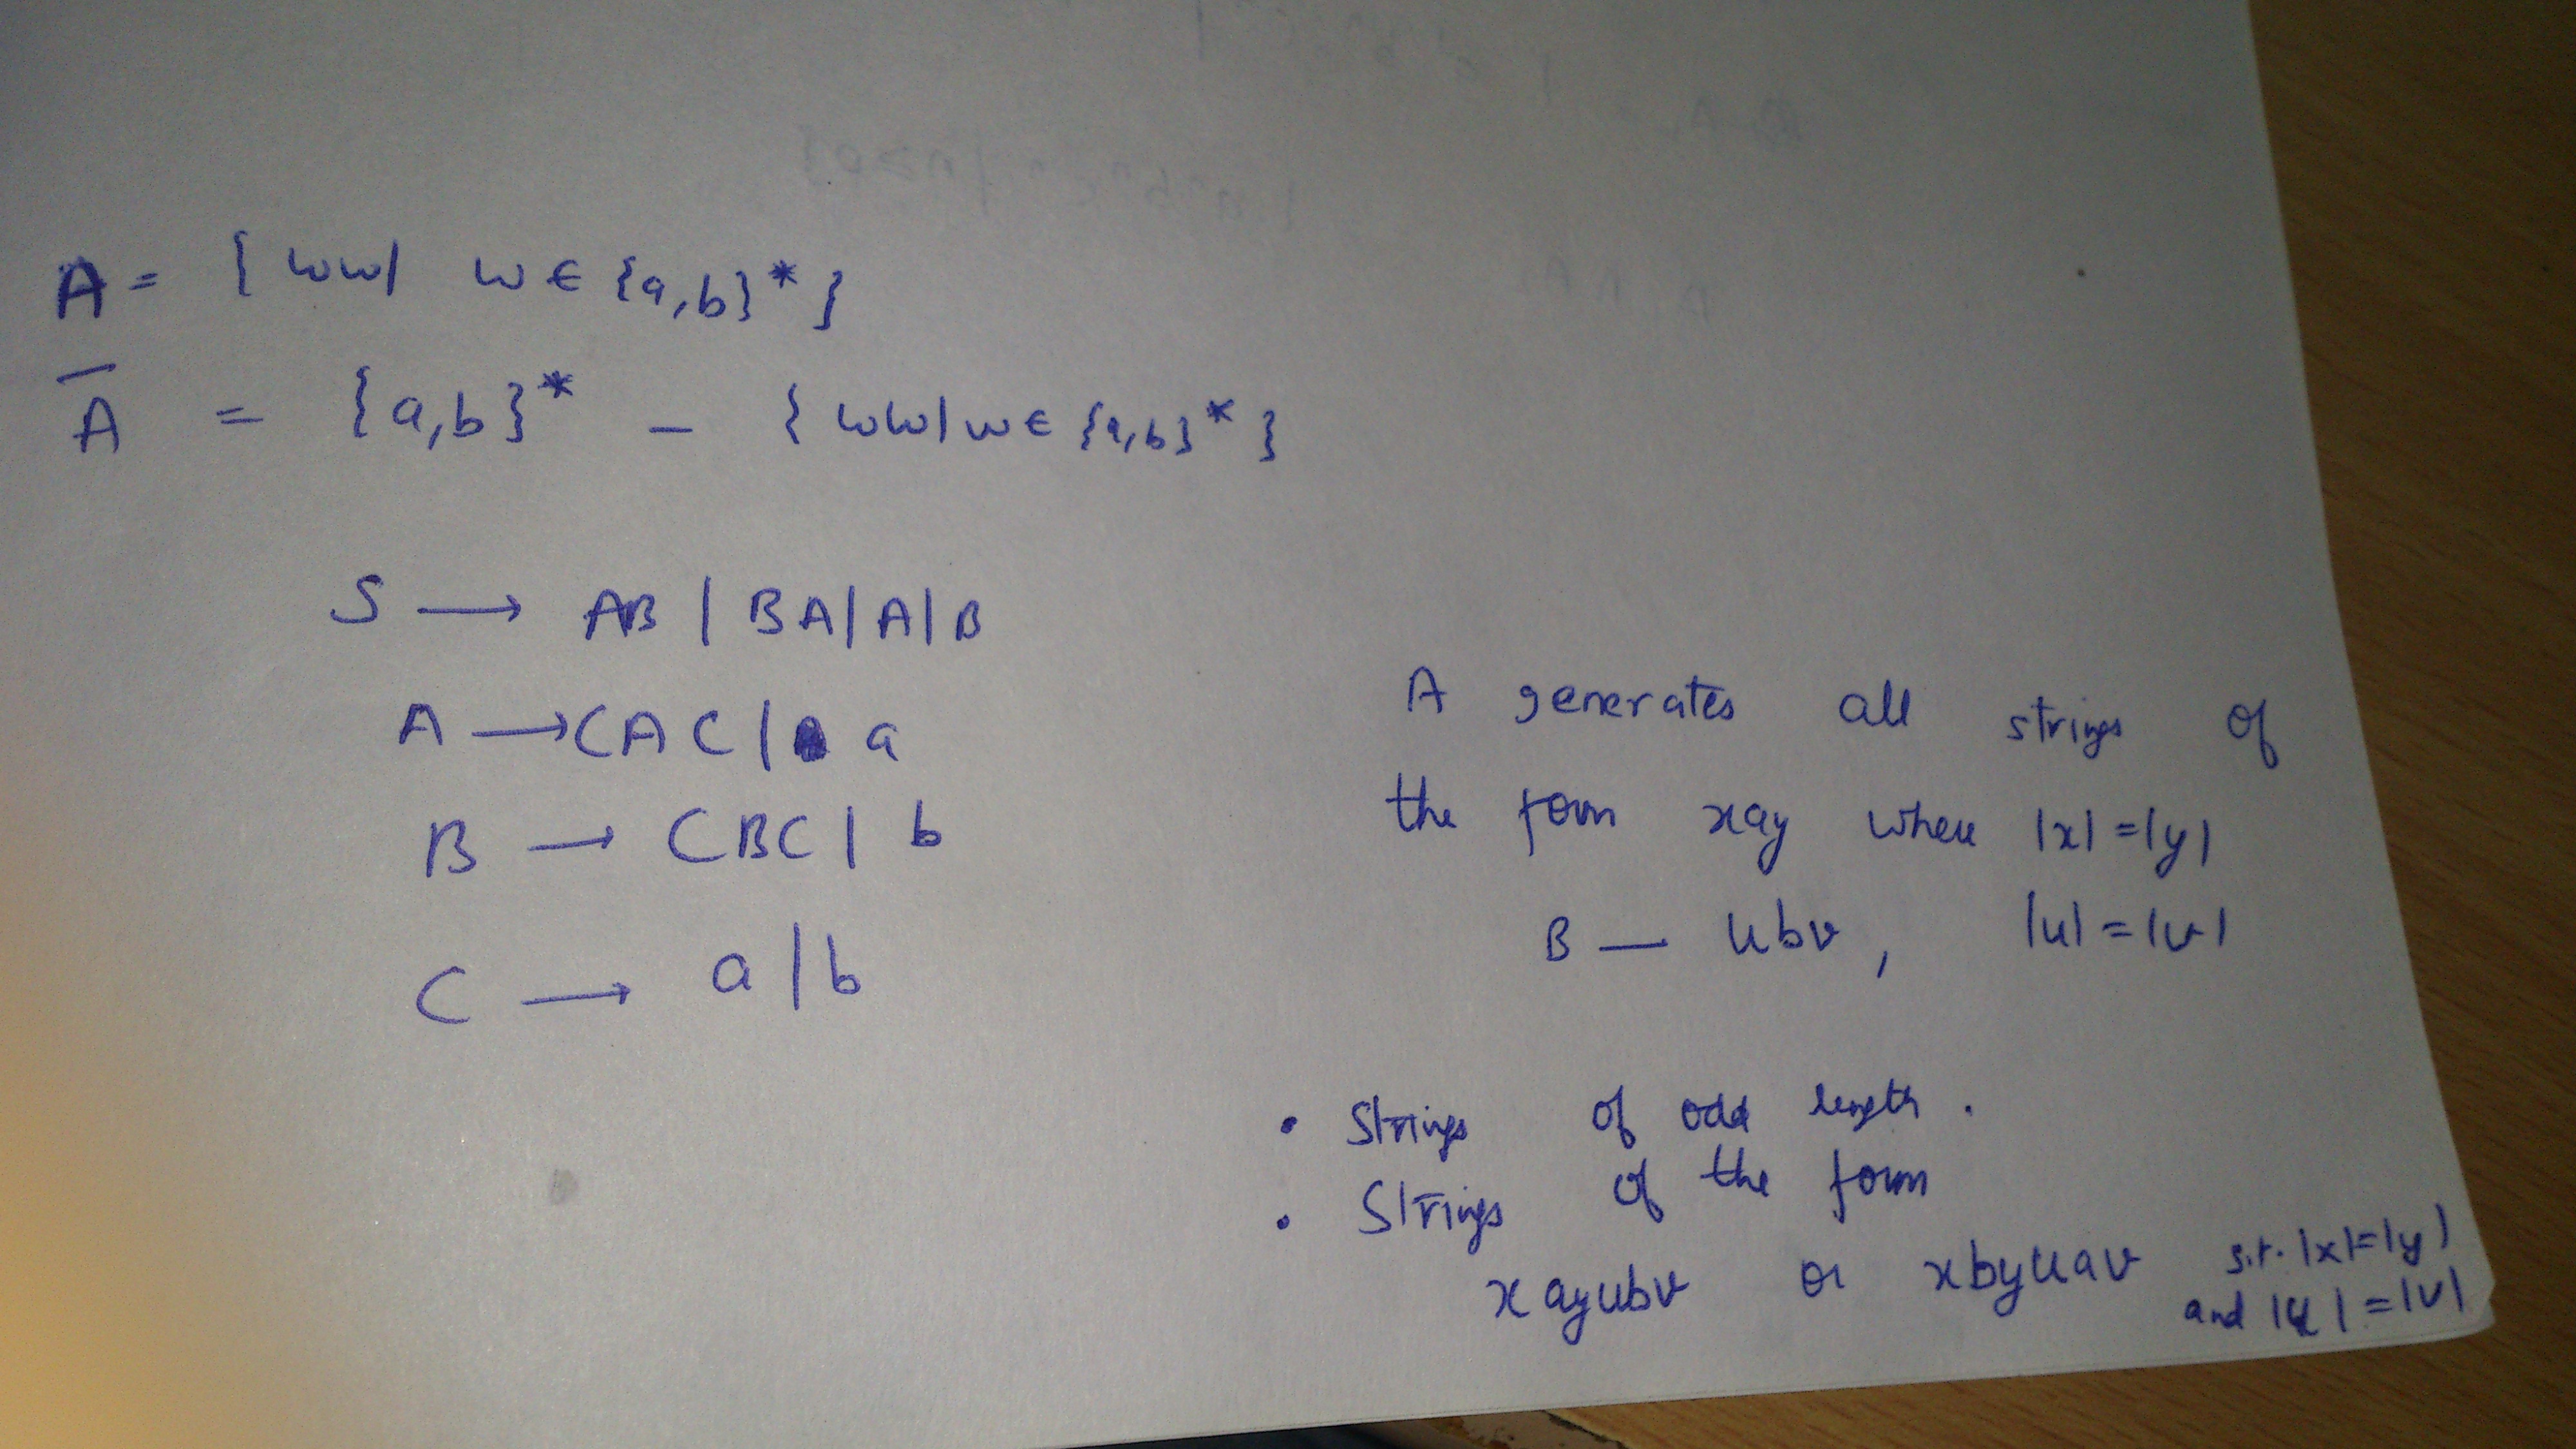 A = { ww | w ∈ {a,b}* }
A̅ = {a,b}* – { ww | w ∈ {a,b}* }
S → AB | BA | A | B
A → CAC | a
B → CBC | b
C → a | b
A generates all strings of
the form xay where |x| = |y|
B — ubv, |u| = |v|
• Strings of odd length.
• Strings of the form
xayubv or xbyuav s.t. |x| = |y|
and |u| = |v|